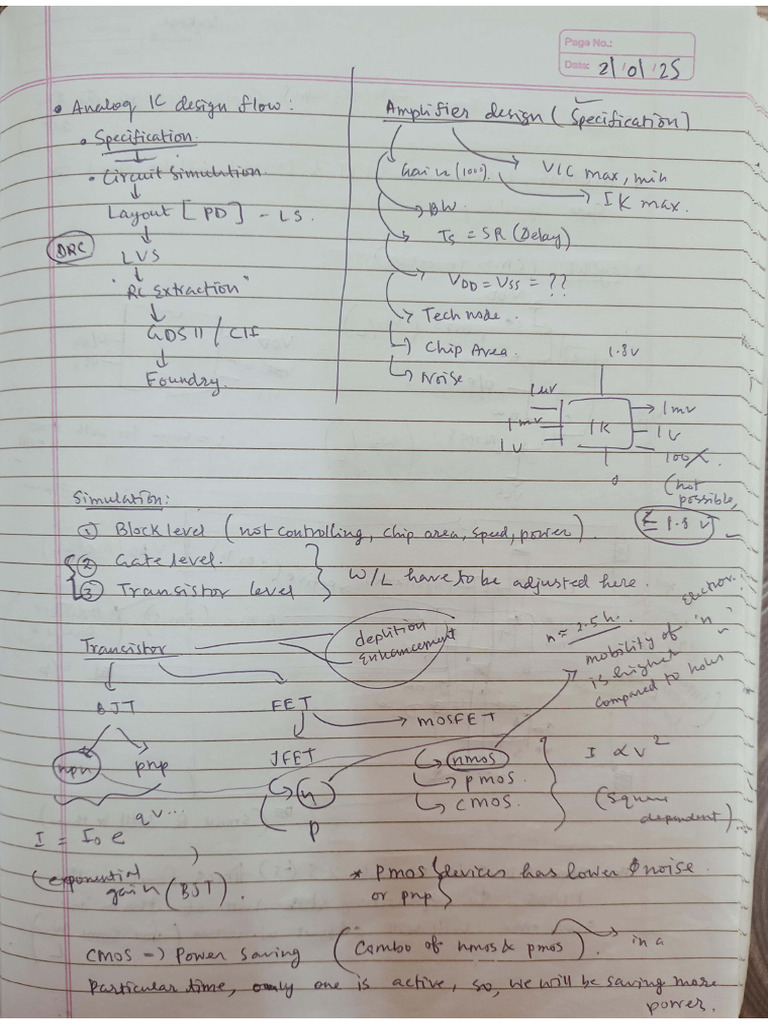 Page No.:
Date: 21/01/25
• Analog IC design flow:
• Specification.
• Circuit Simulation.
Layout [PD] - LS.
DRC
LVS
"RC Extraction"
GDS II / CIF
Foundry.
Amplifier design (Specification)
Gain (1000).
VIC max, min
BW.
IK max.
Ts = SR (Delay)
VDD = VSS = ??
Tech node.
Chip Area.
Noise
1.8V
1uV
1mV
1V
IK
1mV
1V
100
0
(not possible,
≤ 1.8V)
Simulation:
① Block level (not controlling, chip area, speed, power).
② Gate level.
③ Transistor level
W/L have to be adjusted here.
Transistor
deplition
Enhancement
n ≈ 2.5h.
electron.
mobility of 'n'
is higher
compared to holes
BJT
FET
MOSFET
npn
pnp
JFET
n
P
nmos
pmos.
cmos.
I ∝ V²
(square
dependent)
qv...
I = I₀ e
(exponential
gain (BJT).
* pmos devices has lower noise.
or pnp
CMOS → Power Saving (Combo of nmos & pmos). in a
Particular time, only one is active, so, we will be saving more
power.